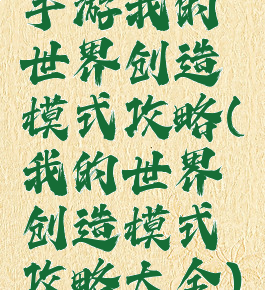 手游我的
世界创造
模式攻略(
我的世界
创造模式
攻略大全)